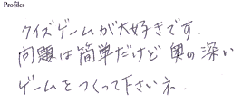 Profiles
クイズゲームが大好きです。
問題は簡単だけど奥の深い
ゲームをつくって下さいネ